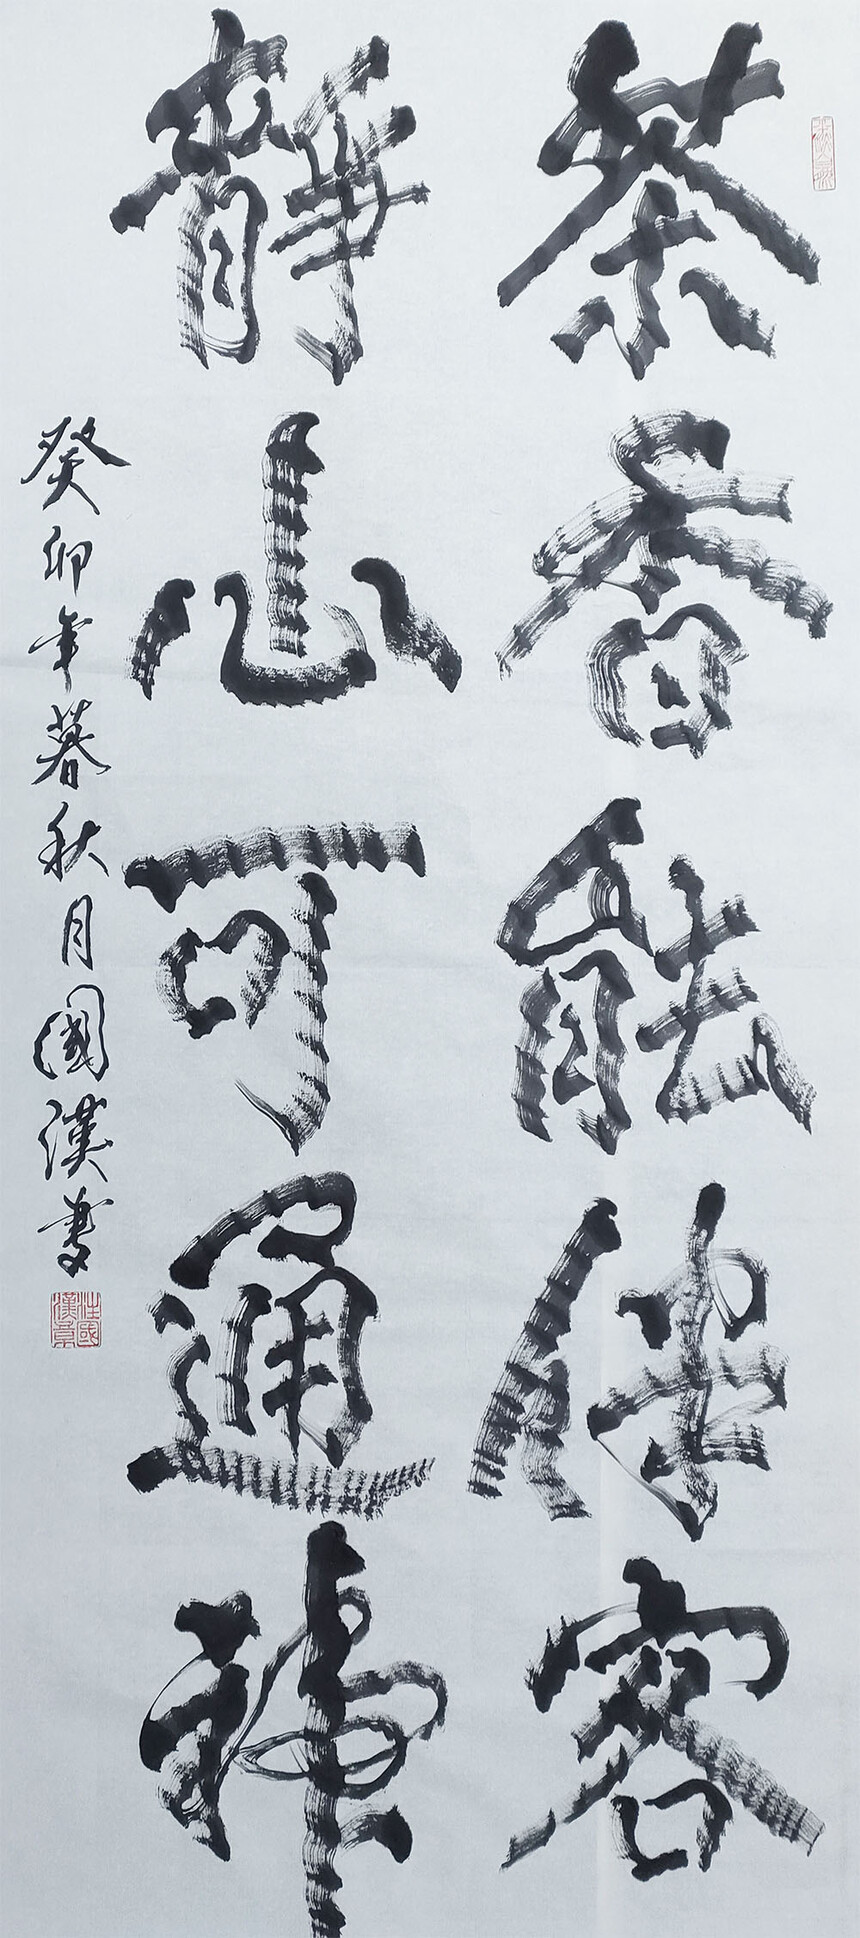 茶香能待客
靜心可通神
癸卯年暮秋月國漢書